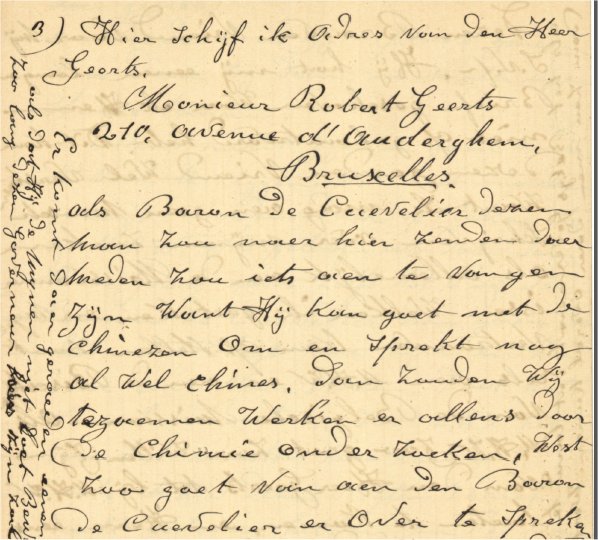 3) Hier schijf ik adres van den Heer
Geerts.
Monieur Robert Geerts
210, avenue d'Auderghem,
Bruxelles.
als Baron de Cuevelier dezen
man zou naer hier zenden daer
meden zou iets aen te vangen
zijn want Hij kan goet met de
chinezen om en sprekt nog
al wel chines. dan zouden wij
tezaemen werken er allens door
de chimie onder zoeken, 
zoo goet van aen den Baron
de Cuevelier er over te spreke
Er komt aer geraeden eenen
als dat Hij de mynen niet
zoo lang dezen Governeur zijn zal